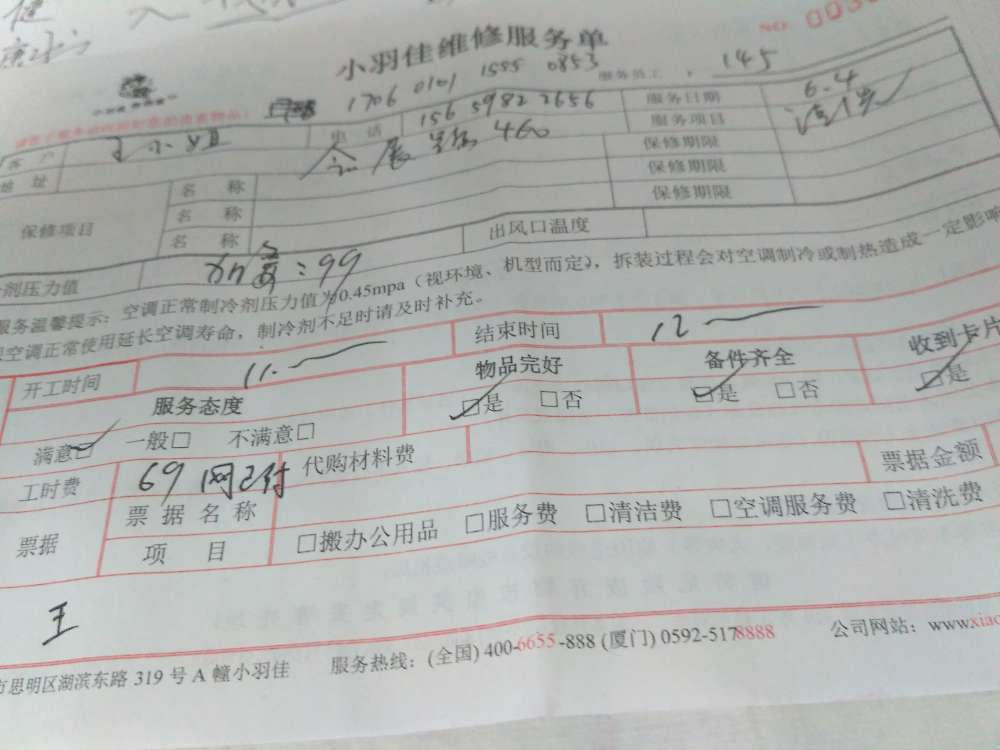 健
康
NO. 003
小羽佳维修服务单
1706 0101 1555 0853
服务员工 145
客户 王小姐 电话 156 5982 2656 服务日期 6.4
地址 会展 460 服务项目 清洗
保修项目 名称 保修期限
名称 保修期限
名称 保修期限
剂压力值 99 出风口温度
服务温馨提示：空调正常制冷剂压力值为0.45mpa（视环境、机型而定），拆装过程会对空调制冷或制热造成一定影响
空调正常使用延长空调寿命，制冷剂不足时请及时补充。
开工时间 11. 结束时间 12
服务态度 物品完好 备件齐全 收到卡片
满意☑ 一般□ 不满意□ ☑是 □否 ☑是 □否 ☑是
工时费 69 网已付 代购材料费 票据金额
票据 票据名称
项目 □搬办公用品 □服务费 □清洁费 □空调服务费 □清洗费
王
市思明区湖滨东路 319 号 A 幢小羽佳 服务热线：(全国) 400-6655-888 (厦门) 0592-5178888 公司网站：www.xiao